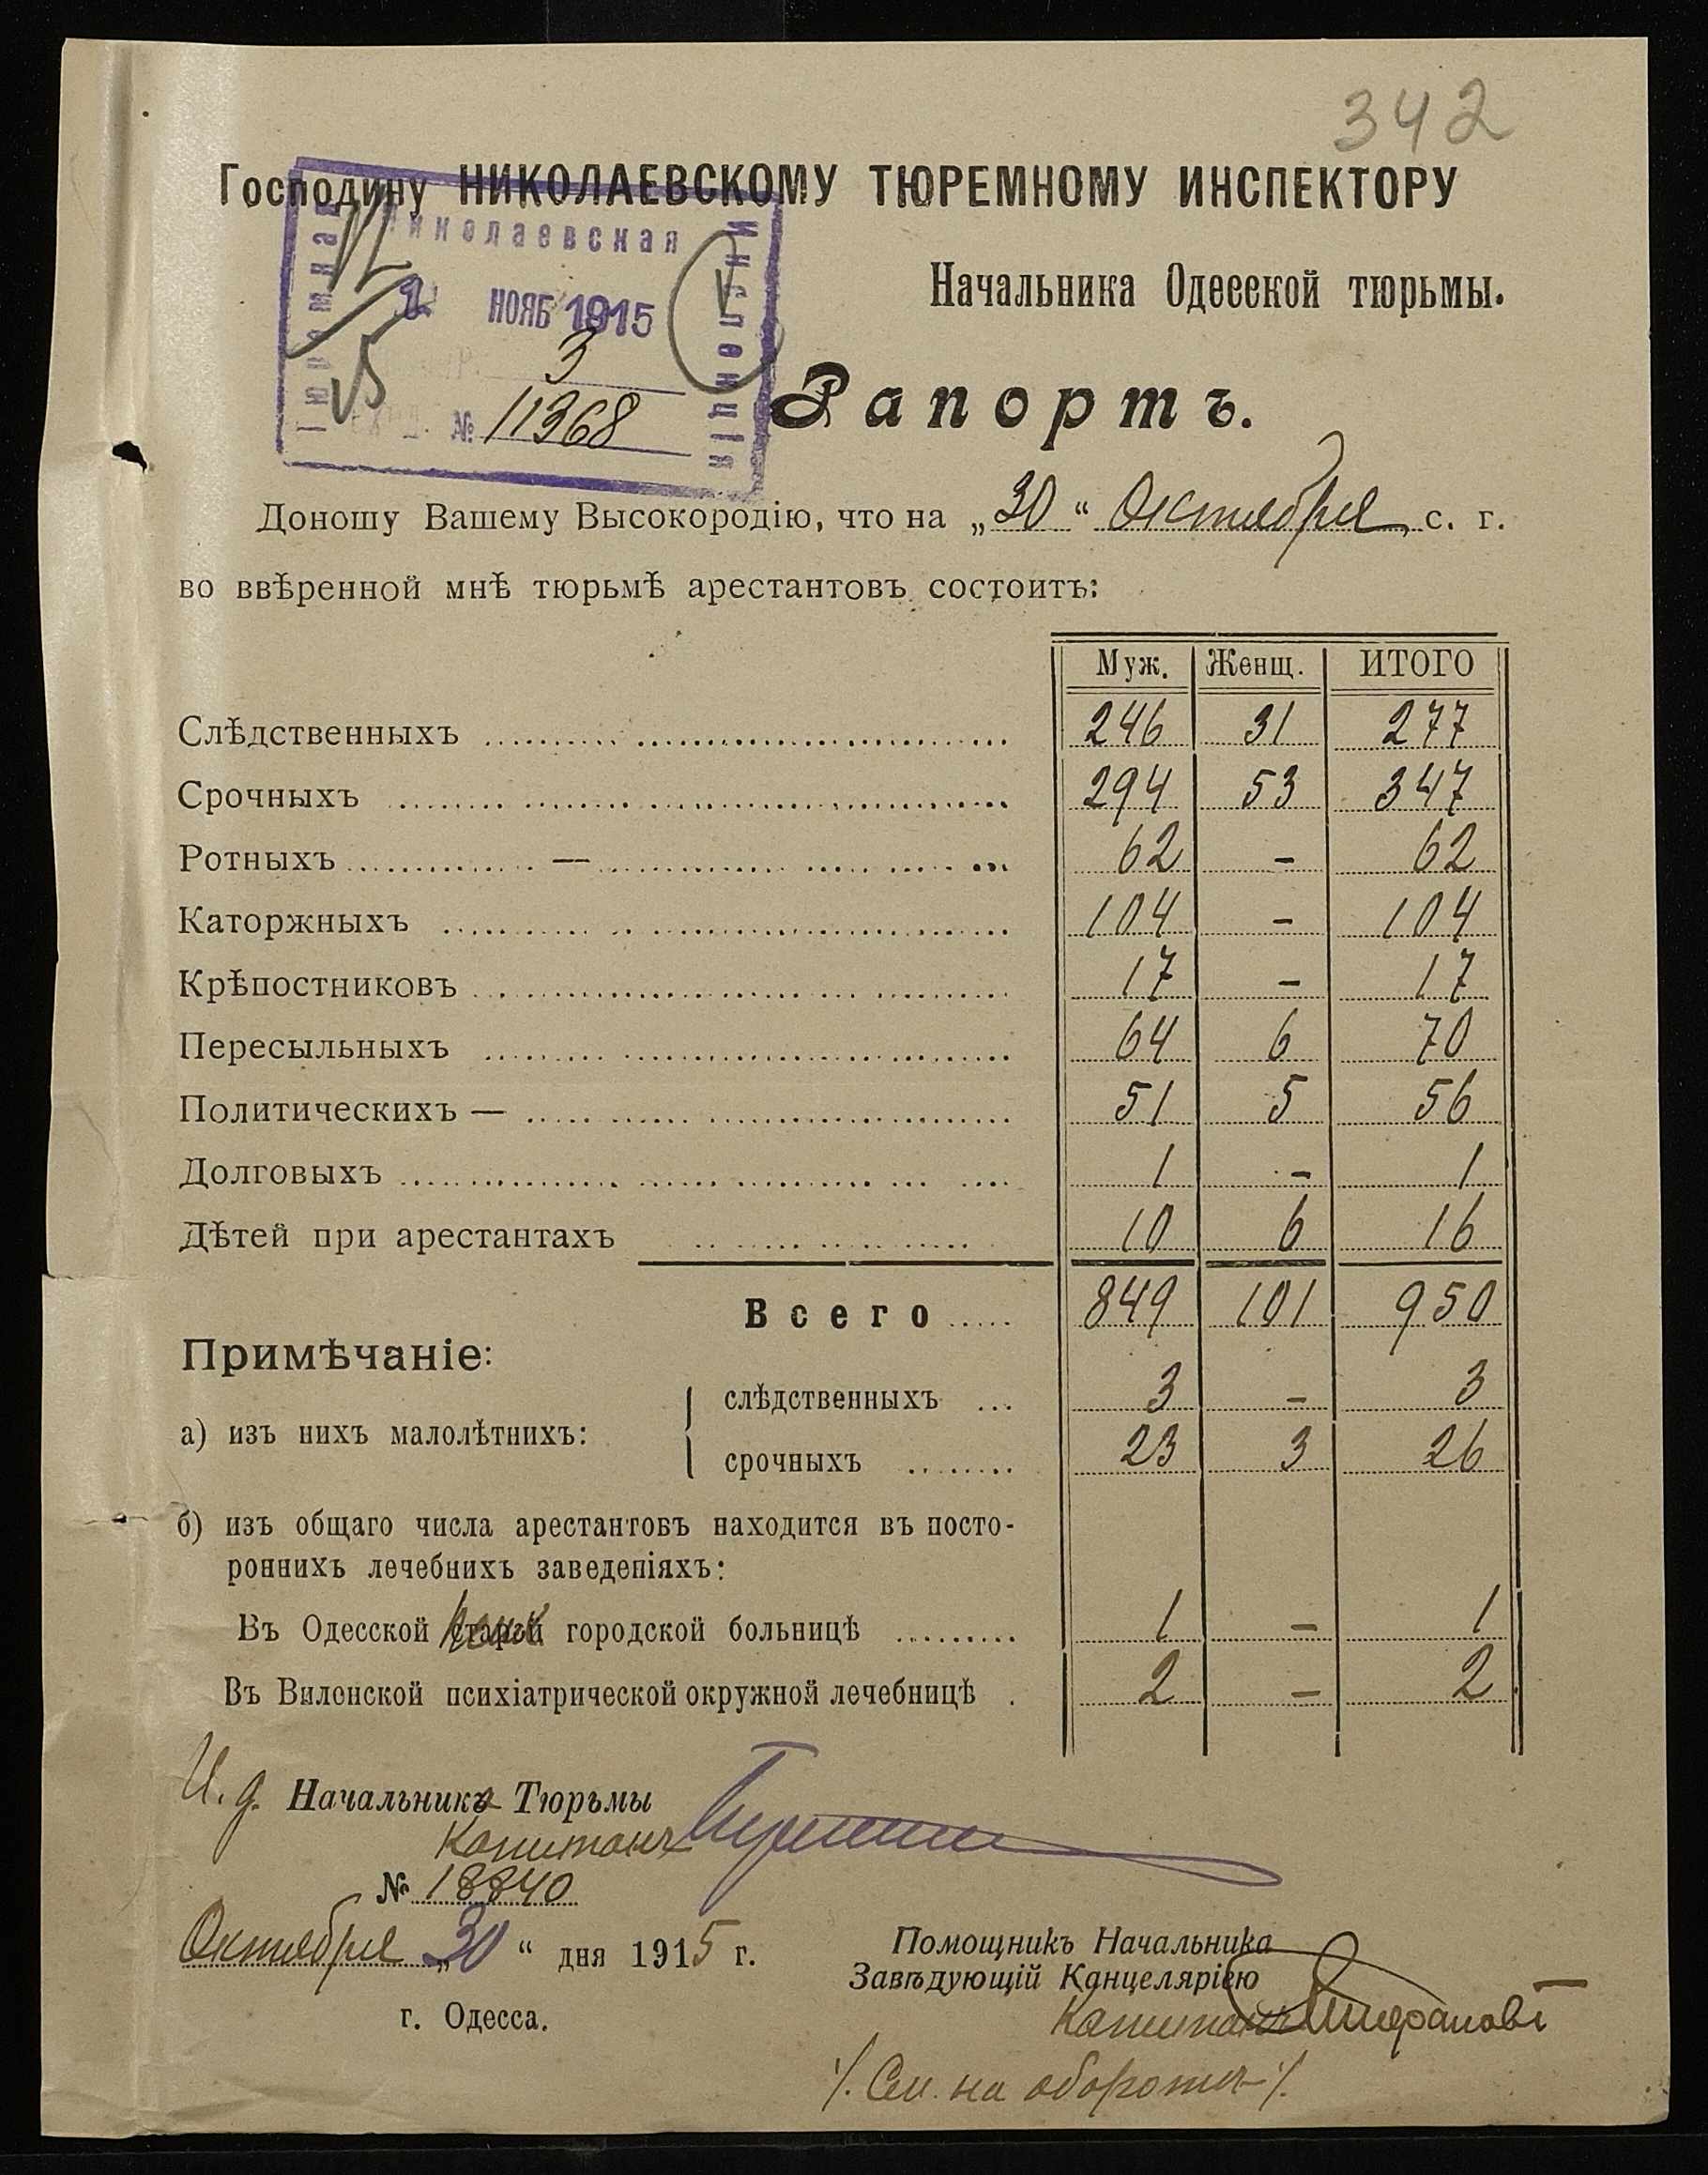 342
Господину НИКОЛАЕВСКОМУ ТЮРЕМНОМУ ИНСПЕКТОРУ
Николаевская
Тюремная
Инспекция
2 НОЯБ 1915
3
Вход. № 11368
Начальника Одесской тюрьмы.
Рапортъ.
Доношу Вашему Высокородію, что на „30“ Октября с. г.
во ввѣренной мнѣ тюрьмѣ арестантовъ состоитъ:
Муж. Женщ. ИТОГО
Слѣдственныхъ 246 31 277
Срочныхъ 294 53 347
Ротныхъ — 62 - 62
Каторжныхъ 104 - 104
Крѣпостниковъ 17 - 17
Пересыльныхъ 64 6 70
Политическихъ — 51 5 56
Долговыхъ 1 - 1
Дѣтей при арестантахъ 10 6 16
Всего 849 101 950
Примѣчаніе:
а) изъ нихъ малолѣтнихъ:
слѣдственныхъ 3 - 3
срочныхъ 23 3 26
б) изъ общаго числа арестантовъ находится въ посто-
роннихъ лечебнихъ заведеніяхъ:
Въ Одесской городской больницѣ 1 - 1
Въ Виленской психіатрической окружной лечебницѣ 2 - 2
И. д. Начальника Тюрьмы
Капитанъ
№ 18840
Октября „30“ дня 1915 г.
г. Одесса.
Помощникъ Начальника
Завѣдующій Канцеляріею
Капитанъ
/. См. на оборотѣ /.